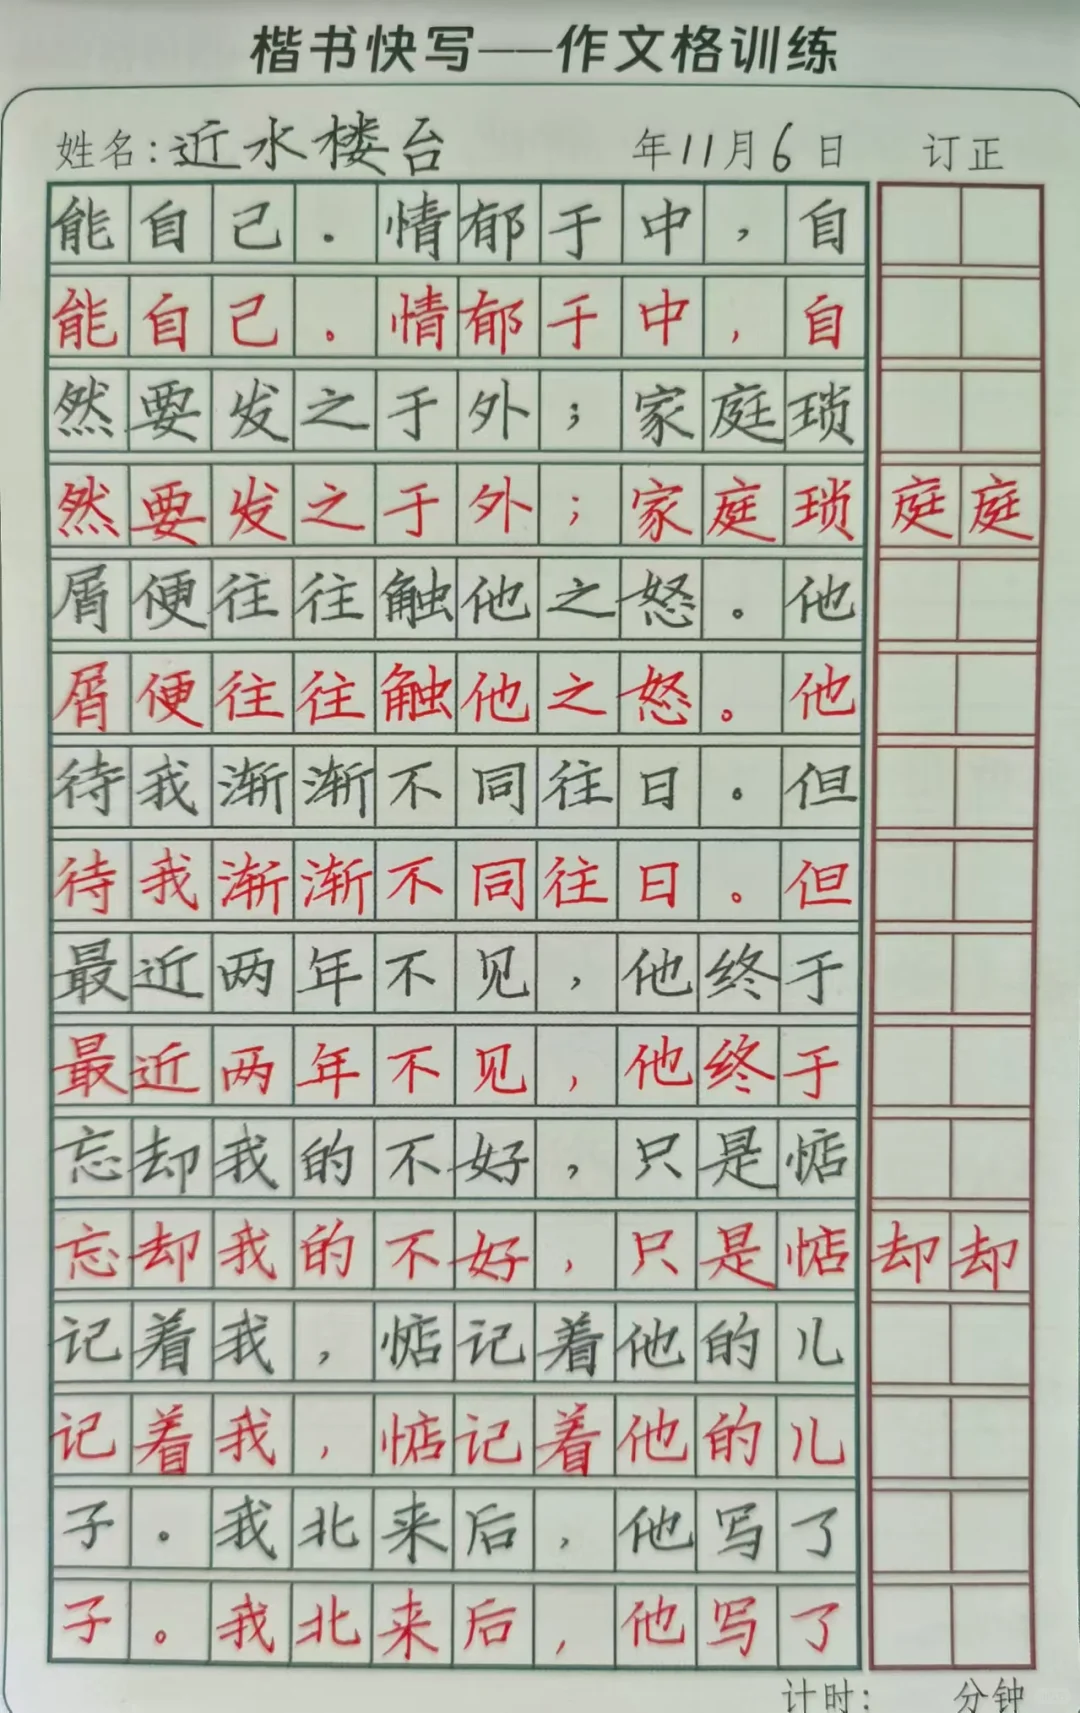 楷书快写——作文格训练
姓名：近水楼台 年11月6日 订正
能自己。情郁于中，自
能自己。情郁于中，自
然要发之于外；家庭琐
然要发之于外；家庭琐 庭庭
屑便往往触他之怒。他
屑便往往触他之怒。他
待我渐渐不同往日。但
待我渐渐不同往日。但
最近两年不见，他终于
最近两年不见，他终于
忘却我的不好，只是惦
忘却我的不好，只是惦 却却
记着我，惦记着他的儿
记着我，惦记着他的儿
子。我北来后，他写了
子。我北来后，他写了
计时： 分钟